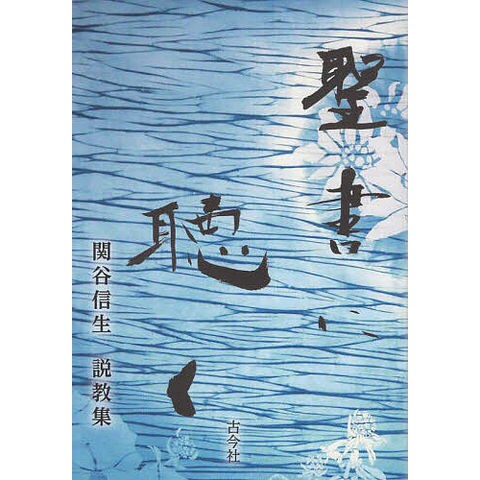 聖書に
聴く
関谷信生 説教集
古今社